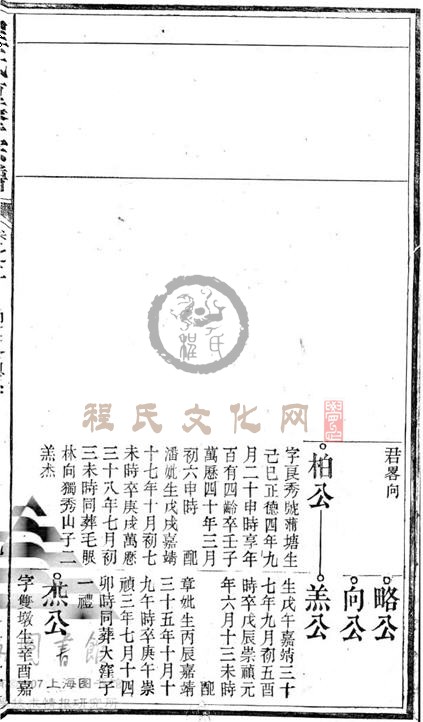 君畧向
柏公
字良秀號蒲塘生
己巳正德四年九
月二十申時享年
百有四齡卒壬子
萬曆四十年三月
初六申時 配
潘妣生戊戌嘉靖
十七年十月初七
未時卒庚戌萬曆
三十八年七月初
三未時同葬毛畈
林向獨秀山子二
羔杰
略公
向公
羔公
生戊午嘉靖三十
七年九月初五酉
時卒戊辰崇禎元
年六月十三未時
配
章妣生丙辰嘉靖
三十五年十月十
九午時卒庚午崇
禎三年七月十四
卯時同葬大窪子
一禮
杰公
字雙墩生辛酉嘉
程氏文化网